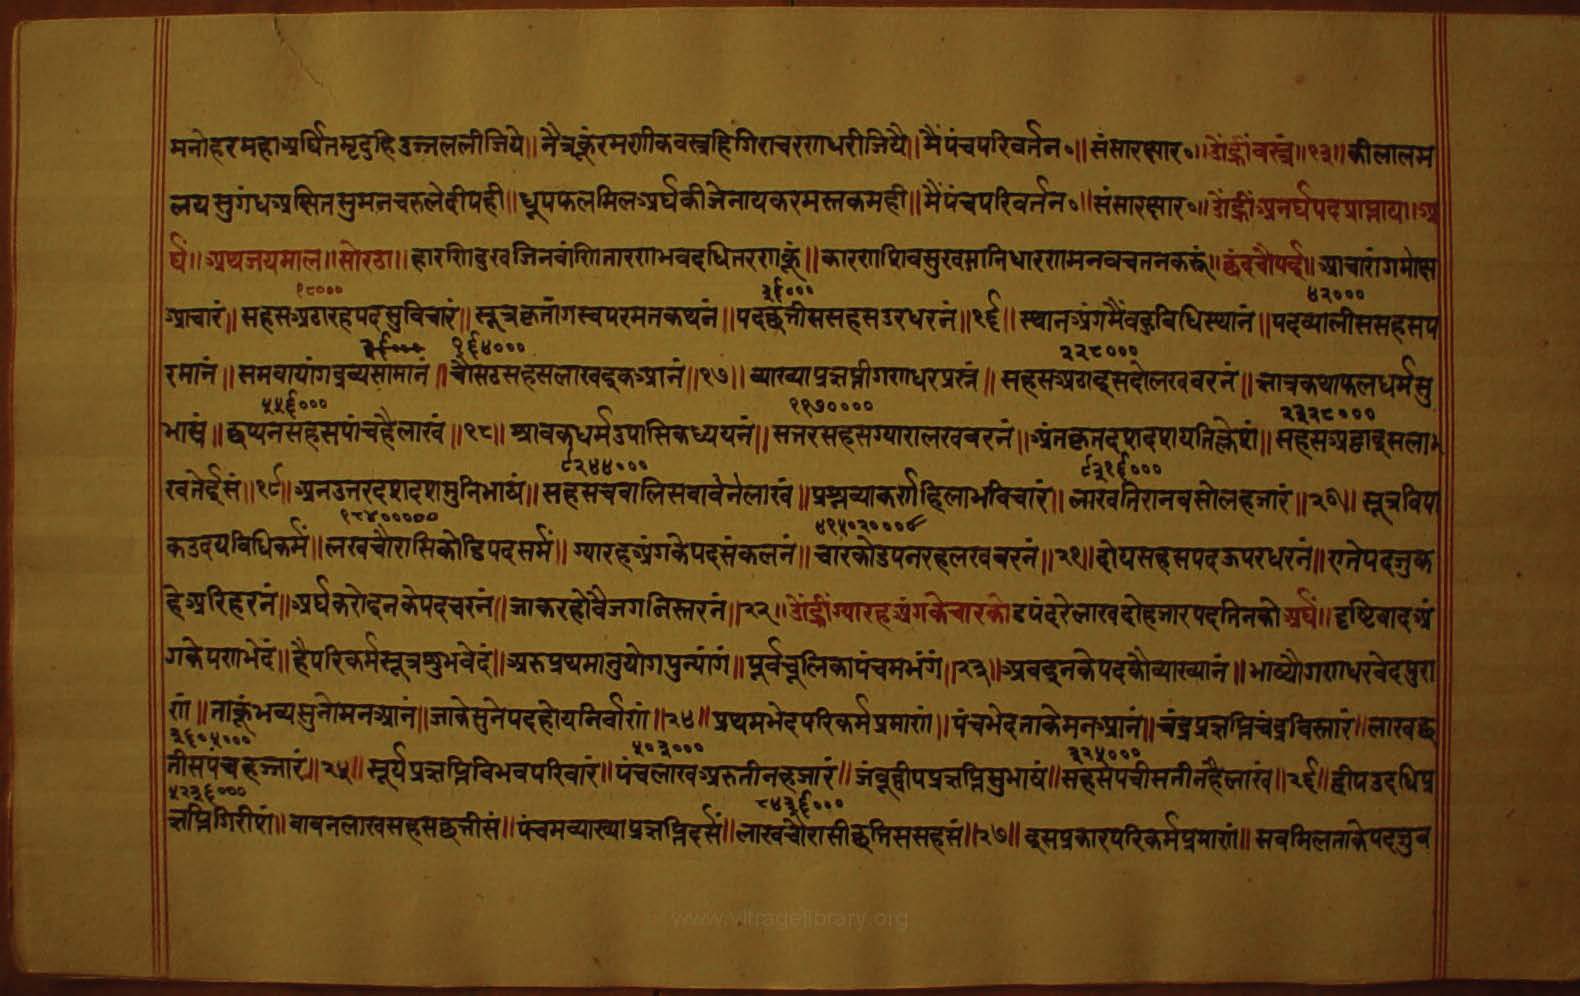 मनोहरमहाअर्घितमृदुहिउज्जललीजिये॥ नैत्रकूंरमणीकवस्त्रहिगिराचरणधरीजियै॥ मैंपंचपरिवर्तन॰॥ संसारक्षार॰॥ ॐह्रींवस्त्रं॥१३॥ कीलालम
लयसुगंधअसितसुमनचरुलेदीपही॥ धूपफलमिलअर्घकीजेनायकरमस्तकमही॥ मैंपंचपरिवर्तन॰॥ संसारक्षार॰॥ ॐह्रींअनर्घपदप्राप्ताय॥ अ
र्घं॥ अथजयमाल॥ सोरठा॥ हारणिदुखजिनवांणितारणभवदधितरणकूं॥ कारणशिवसुखमानिधारणमनवचतनकरूं॥ छंदचौपई॥ आचारांगमोस
१८००० ३६००० ४२०००
आचारं॥ सहसअठारहपदसुविचारं॥ सूत्रकृतांगस्वपरमतकथनं॥ पदछत्तीससहसउरधरनं॥१६॥ स्थानअंगमैंवहुबिधिस्थानं॥ पदव्यालीससहसप
१६४००० २२८०००
रमानं॥ समवायांगद्रव्यसामानं॥ चौसठसहसलाखइकआनं॥१७॥ व्याख्याप्रज्ञप्तीगणधरप्रस्नं॥ सहसअठाइसदोलखवरनं॥ ज्ञात्रकथाफलधर्मसु
५५६००० ११७०००० २३२८०००
भाखं॥ छप्पनसहसपांचहैलाखं॥१८॥ श्रावकधर्मउपासिकध्ययनं॥ सत्तरसहसग्यारालखबरनं॥ अंतकृतदशदशयतिक्लेशं॥ सहसअठ्ठाइसला
९२४४००० ९३१६०००
खतेईसं॥१९॥ अनउतरदशदशमुनिभाषं॥ सहसचवालिसवावेनलाखं॥ प्रश्नव्याकर्णहिलाभविचारं॥ लाखतिरानवसोलहजारं॥२०॥ सूत्रविपा
१८४००००० ४१५०२०००
कउदयविधिकर्मं॥ लखचौरासिकोडिपदसर्मं॥ ग्यारहअंगकेपदसंकलनं॥ चारकोडपनरहलखबरनं॥२१॥ दोयसहसपदऊपरधरनं॥ एतेपदजुक
हेअरिहरनं॥ अर्घकरोइनकेपदचरनं॥ जाकरहोवैजगनिस्तरनं॥२२॥ ॐह्रींग्यारहअंगकेचारकोडपंदरेलाखदोहजारपदतिनकोअर्घं॥ दृष्टिवादअं
गकेपणभेदं॥ हैपरिकर्मसूत्रशुभवेदं॥ अरुप्रथमानुयोगपुन्यांगं॥ पूर्वचूलिकापंचमभंगं॥२३॥ अवइनकेपदकौव्याख्यानं॥ भाष्यौगणधरवेदपुरा
णं॥ ताकूंभव्यसुनोमनआनं॥ जाकेसुनेपदहोयनिर्वाणं॥२४॥ प्रथमभेदपरिकर्मप्रमाणं॥ पंचभेदताकेमनआनं॥ चंद्रप्रज्ञप्तिचंद्रविस्तारं॥ लाखछ
३६०५००० ५०३००० ३२५०००
त्तीसपंचहज्जारं॥२५॥ सूर्यप्रज्ञप्तिविभवपरिवारं॥ पंचलाखअरुतीनहजारं॥ जंबूद्वीपप्रज्ञप्तिसुभाषं॥ सहसपचीसतीनहैलाखं॥२६॥ द्वीपउदधिप्र
५२३६००० ८४३६०००
ज्ञप्तिगिरीशं॥ बावनलाखसहसछत्तीसं॥ पंचमव्याख्याप्रज्ञप्तिदर्सं॥ लाखचौरासीछत्तिससहसं॥२७॥ इसप्रकारपरिकर्मप्रमाणं॥ सबमिलताकेपदजुब
www.vitragelibrary.org